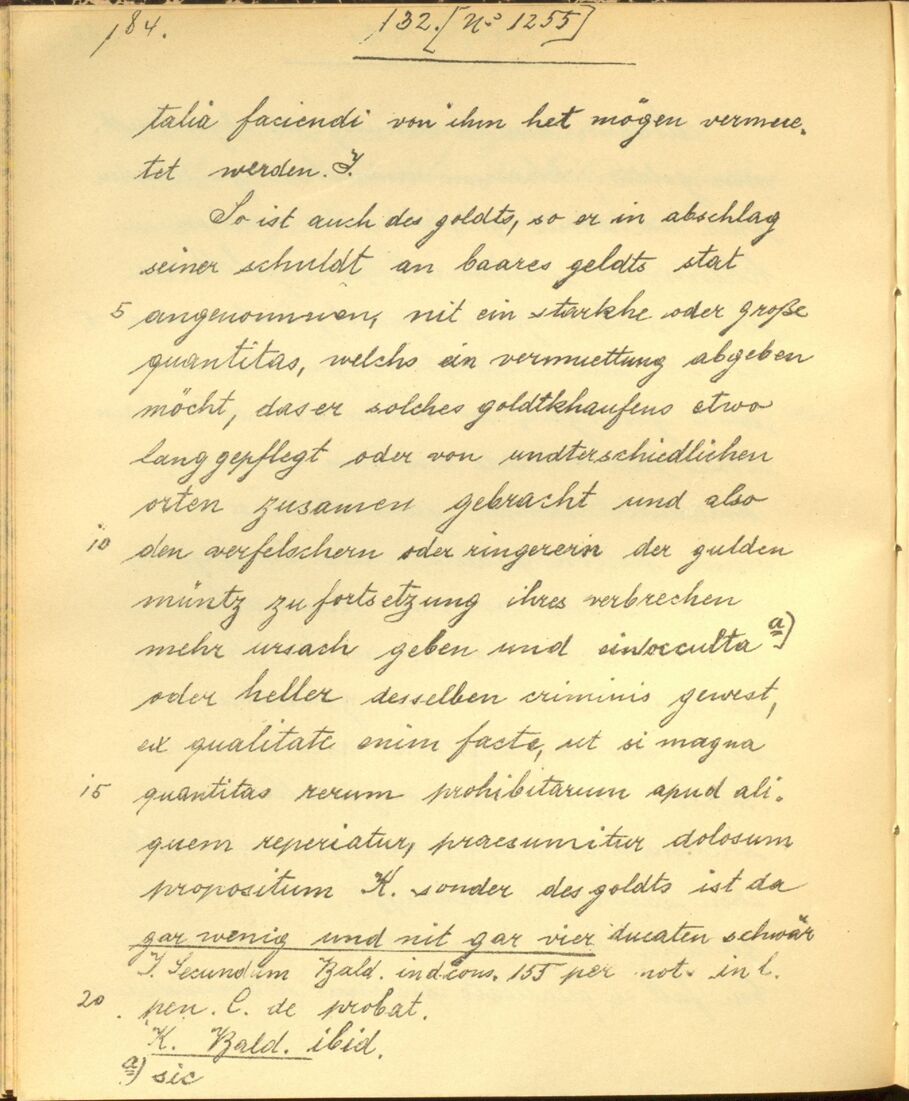 184.
132. [No 1255]
talia faciendi von ihm het mögen vermue-
tet werden. J.
So ist auch des goldts, so er in abschlag
seiner schuldt an baares geldts stat
5 angenommen, nit ein starkhe oder große
quantitas, welchs ein vermuettung abgeben
möcht, das er solches goldtkhaufens etwo
lang gepflegt oder von undterschiedlichen
orten zusamen gebracht und also
10 den verfelschern oder ringerern der gulden
müntz zu fortsetzung ihres verbrechen
mehr ursach geben und ein occulta a)
oder heller desselben criminis gewest,
ex qualitate enim facte, ut si magna
15 quantitas rerum prohibitarum apud ali-
quem reperiatur, praesumitur dolosum
propositum K. sonder des goldts ist da
gar wenig und nit gar vier ducaten schwär
J. Secundum Bald. in cons. 155 per not. in l.
20 pen. C. de probat.
K. Bald. ibid.
a) sic